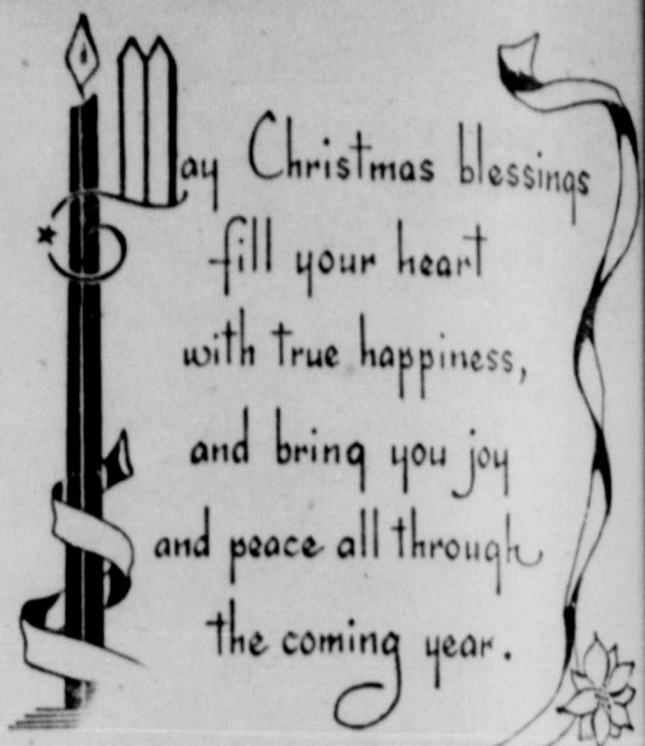 May Christmas blessings
fill your heart
with true happiness,
and bring you joy
and peace all through
the coming year.